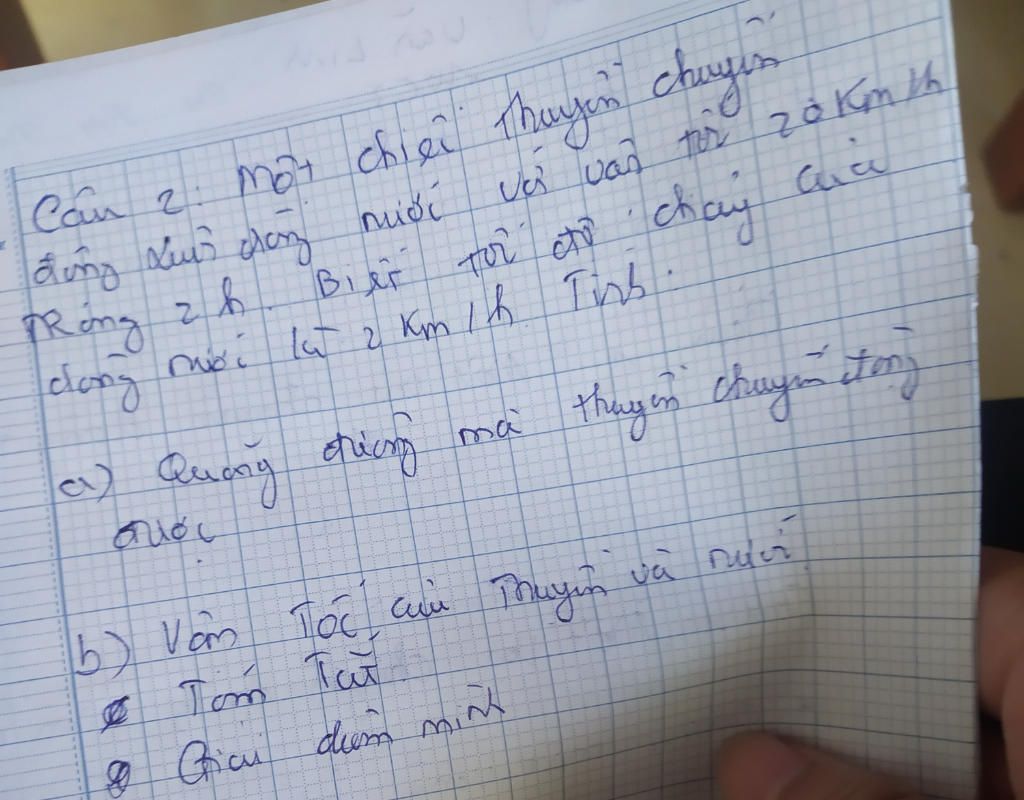 Câu 2: Một chiếc thuyền chuyển
động xuôi dòng nước với vận tốc 20 Km/h
trong 2 h. Biết tốc độ chảy của
dòng nước là 2 Km/h Tính:
a) Quãng đường mà thuyền chuyển động
được
b) Vận Tốc của Thuyền và nước
Tóm Tắt
Giải dùm mình